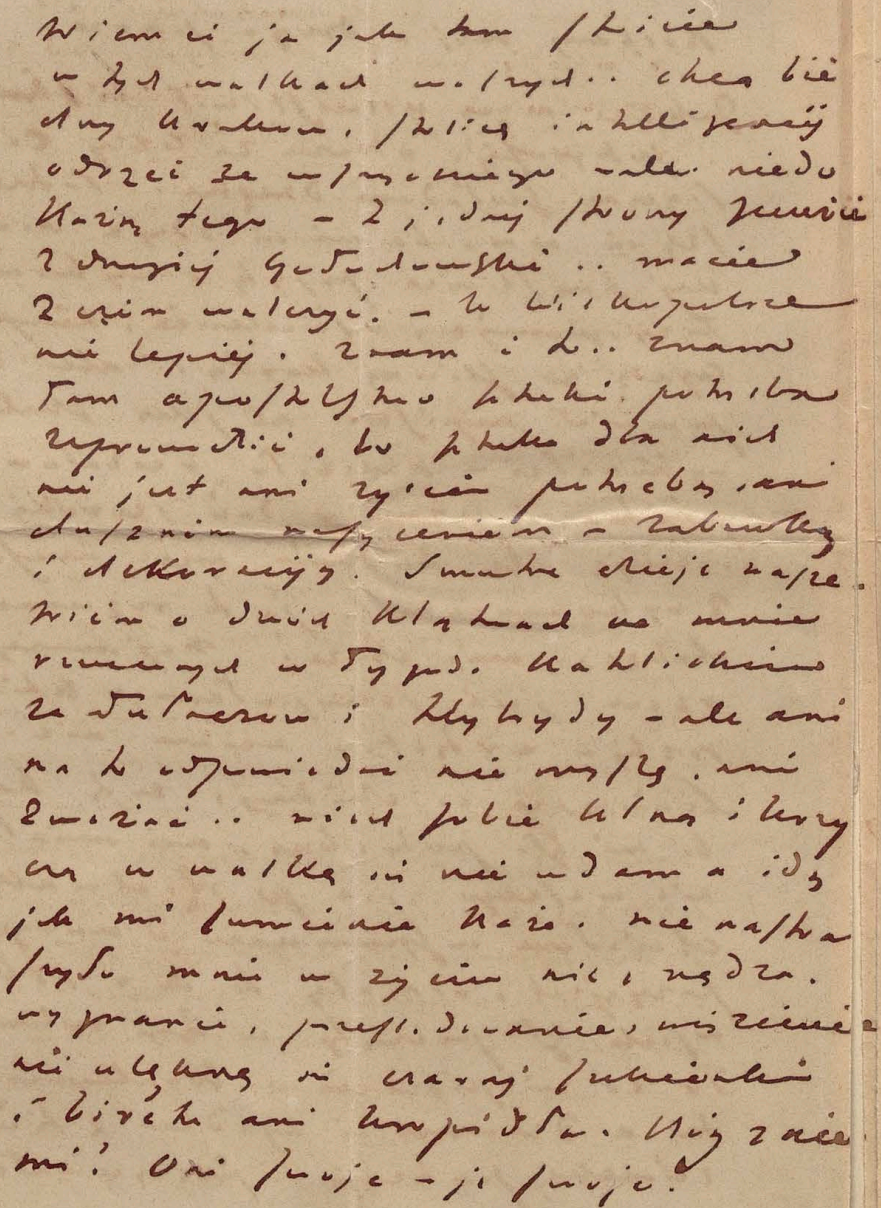 Wiem ci ja jak tam stoicie
w tych walkach waszych .. chcą bie
dny Kraków, stolicę intelligencyi
odrzeć ze wszystkiego – ale niedo
każą tego – Z jednej strony
z drugiej Godlewski .. macie
z czem walczyć. – W Wielkopolsce
nie lepiej. Znam i to .. znam
Tam apostolstwo sztuki potrzeba
zaprowadzić, bo sztuka dla nich
nie jest ani życia potrzebą, ani
dusznem nasyceniem – zabawką
i dekoracyją. Smutne dzieje nasze.
Wiem o dwóch klątwach na mnie
rzuconych w Tygod. Katolickim
za i hybrydy – ale ani
na to odpowiedzi nie wyszlę, ani
zważać .. niech sobie klną i krzy
czą w walkę się nie wdam a idę
jak mi sumienie każe. nie nastra
szyło mnie w życiu nic, nędza,
wygnanie, prześladowanie, więzienie
nie ulęknę się czarnej sukienki
i bireta ani kropidła. Cóż z nie
mi? Oni swoje – ja swoje!